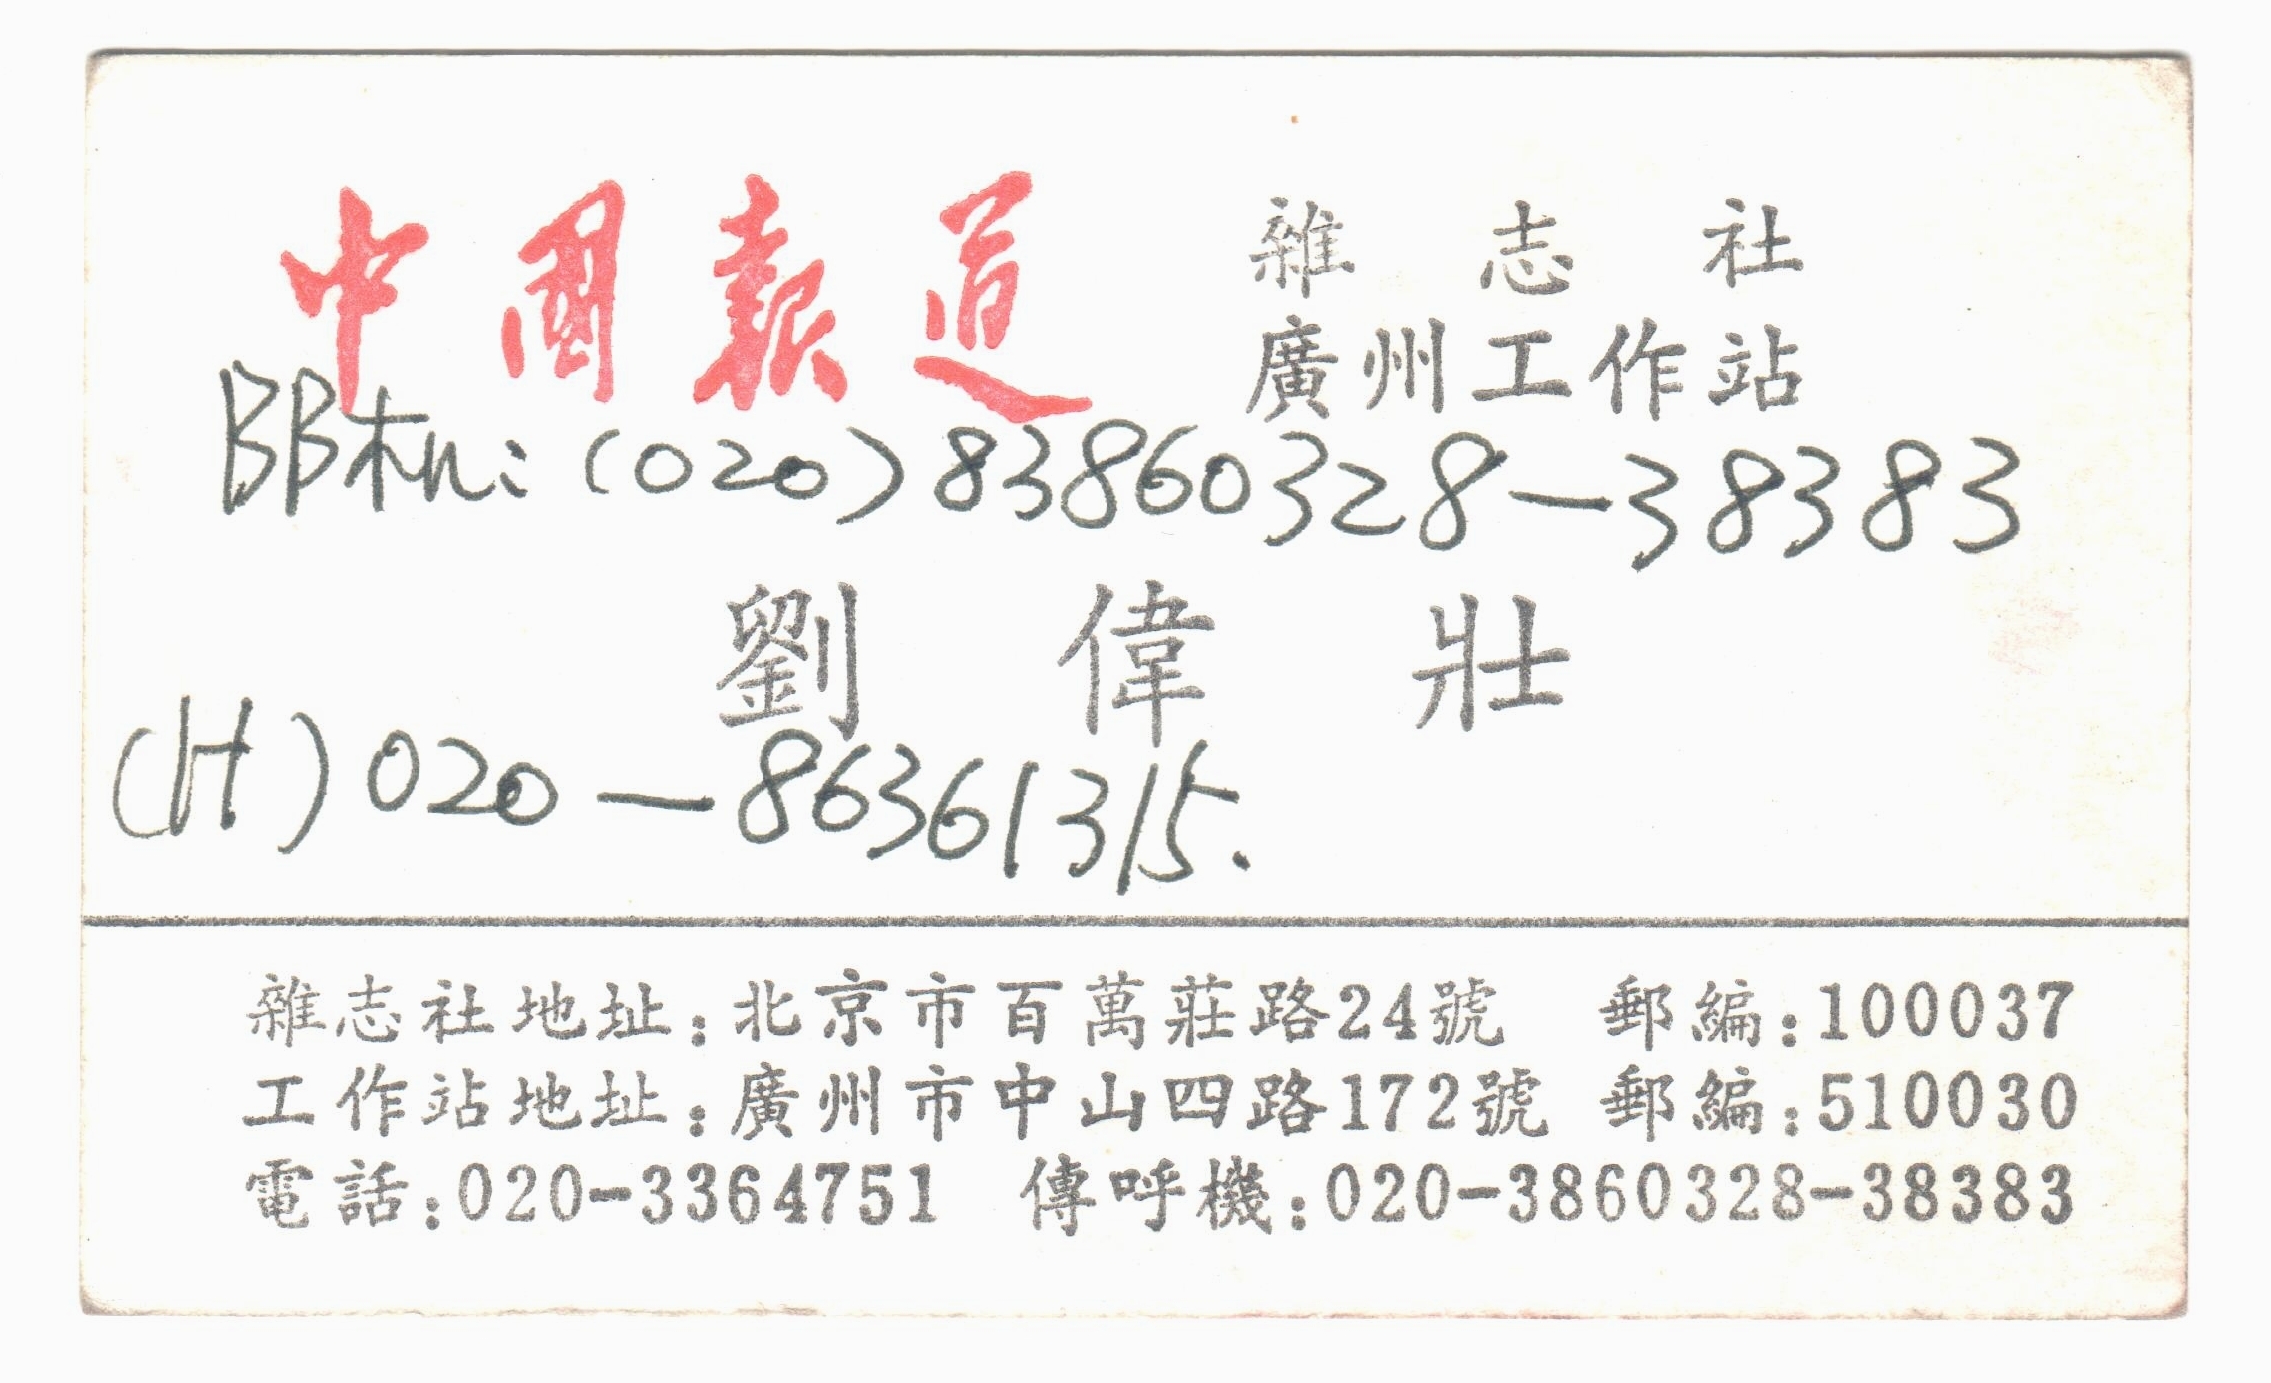 中國報道 雜志社
廣州工作站
BB机:(020)83860328—38383
劉偉壯
(H)020—86361315.
雜志社地址:北京市百萬莊路24號 郵編:100037
工作站地址:廣州市中山四路172號 郵編:510030
電話:020-3364751 傳呼機:020-3860328-38383